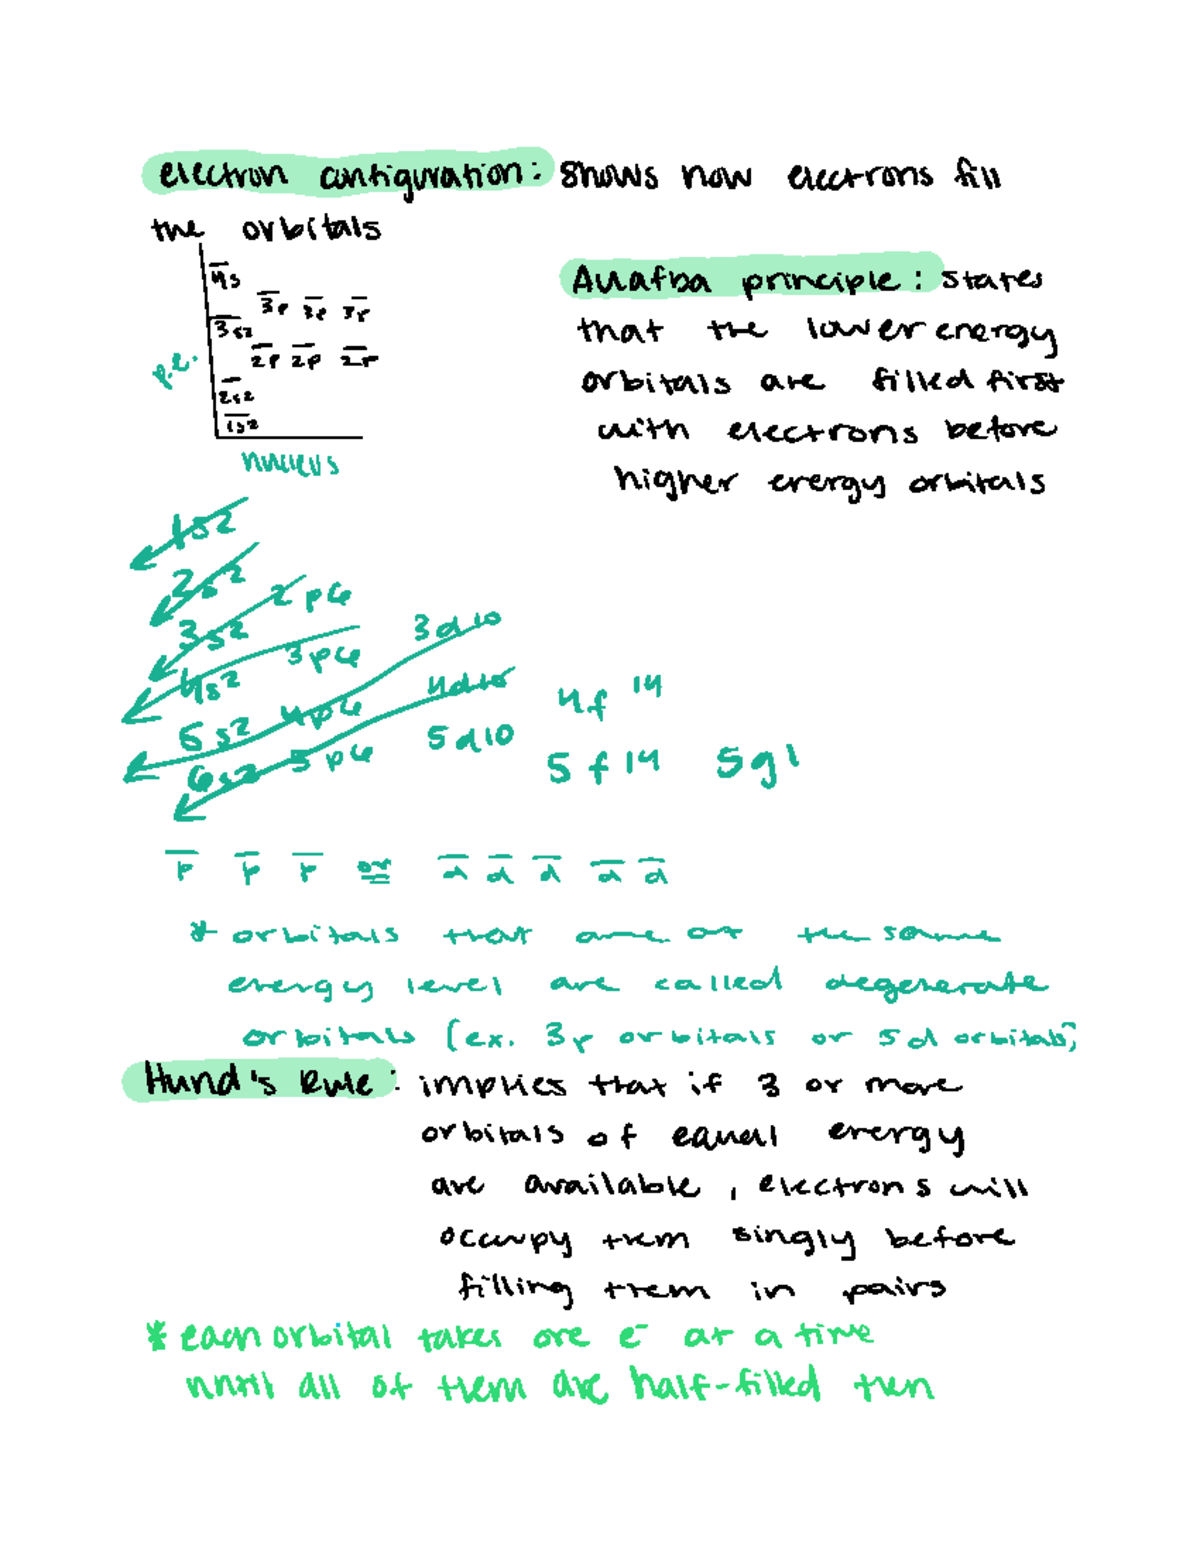 electron configuration: shows how electrons fill
the orbitals
4s
3p 3p 3p
3s2
2p 2p 2p
p.e.
2s2
1s2
nucleus
Auafba principle: states
that the lower energy
orbitals are filled first
with electrons before
higher energy orbitals
1s2
2s2 2p6
3s2 3p6 3d10
4s2 4p6 4d10 4f 14
5s2 5p6 5d10 5f14 5g1
6s2
p p p or d d d d d
* orbitals that are at the same
energy level are called degenerate
orbitals (ex. 3p orbitals or 5d orbitals)
Hund's Rule: implies that if 3 or more
orbitals of equal energy
are available, electrons will
occupy them singly before
filling them in pairs
* each orbital takes one e- at a time
until all of them are half-filled then